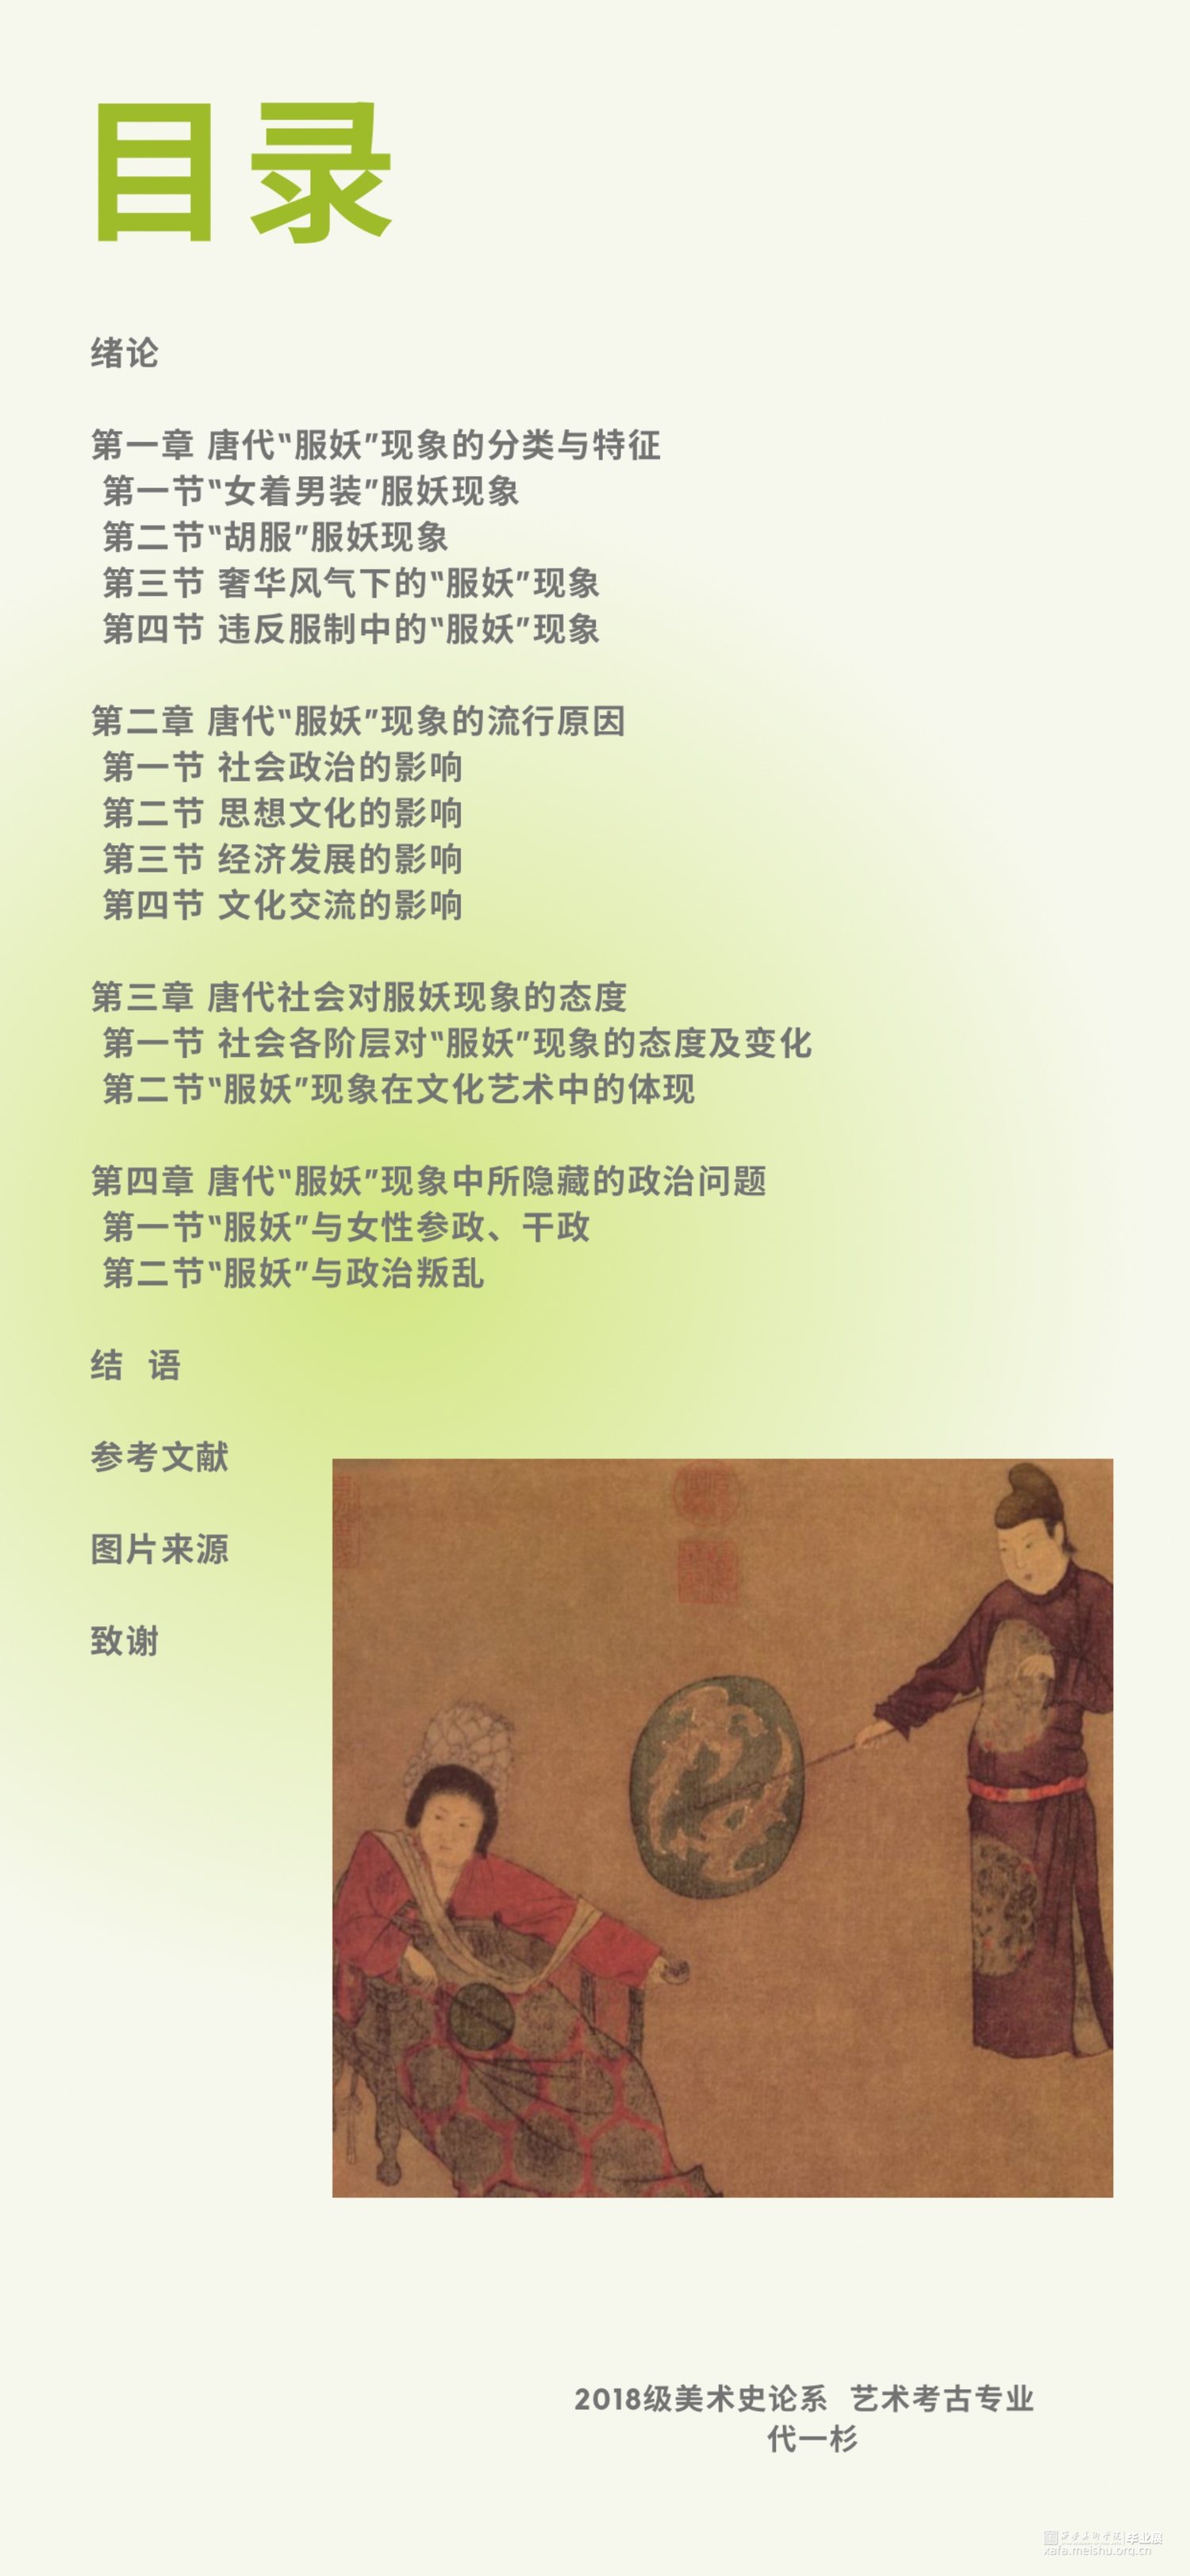 目录
绪论
第一章 唐代“服妖”现象的分类与特征
第一节“女着男装”服妖现象
第二节“胡服”服妖现象
第三节 奢华风气下的“服妖”现象
第四节 违反服制中的“服妖”现象
第二章 唐代“服妖”现象的流行原因
第一节 社会政治的影响
第二节 思想文化的影响
第三节 经济发展的影响
第四节 文化交流的影响
第三章 唐代社会对服妖现象的态度
第一节 社会各阶层对“服妖”现象的态度及变化
第二节“服妖”现象在文化艺术中的体现
第四章 唐代“服妖”现象中所隐藏的政治问题
第一节“服妖”与女性参政、干政
第二节“服妖”与政治叛乱
结 语
参考文献
图片来源
致谢
2018级美术史论系 艺术考古专业
代一杉
西安美术学院 毕业展
xafa.meishu.org.cn